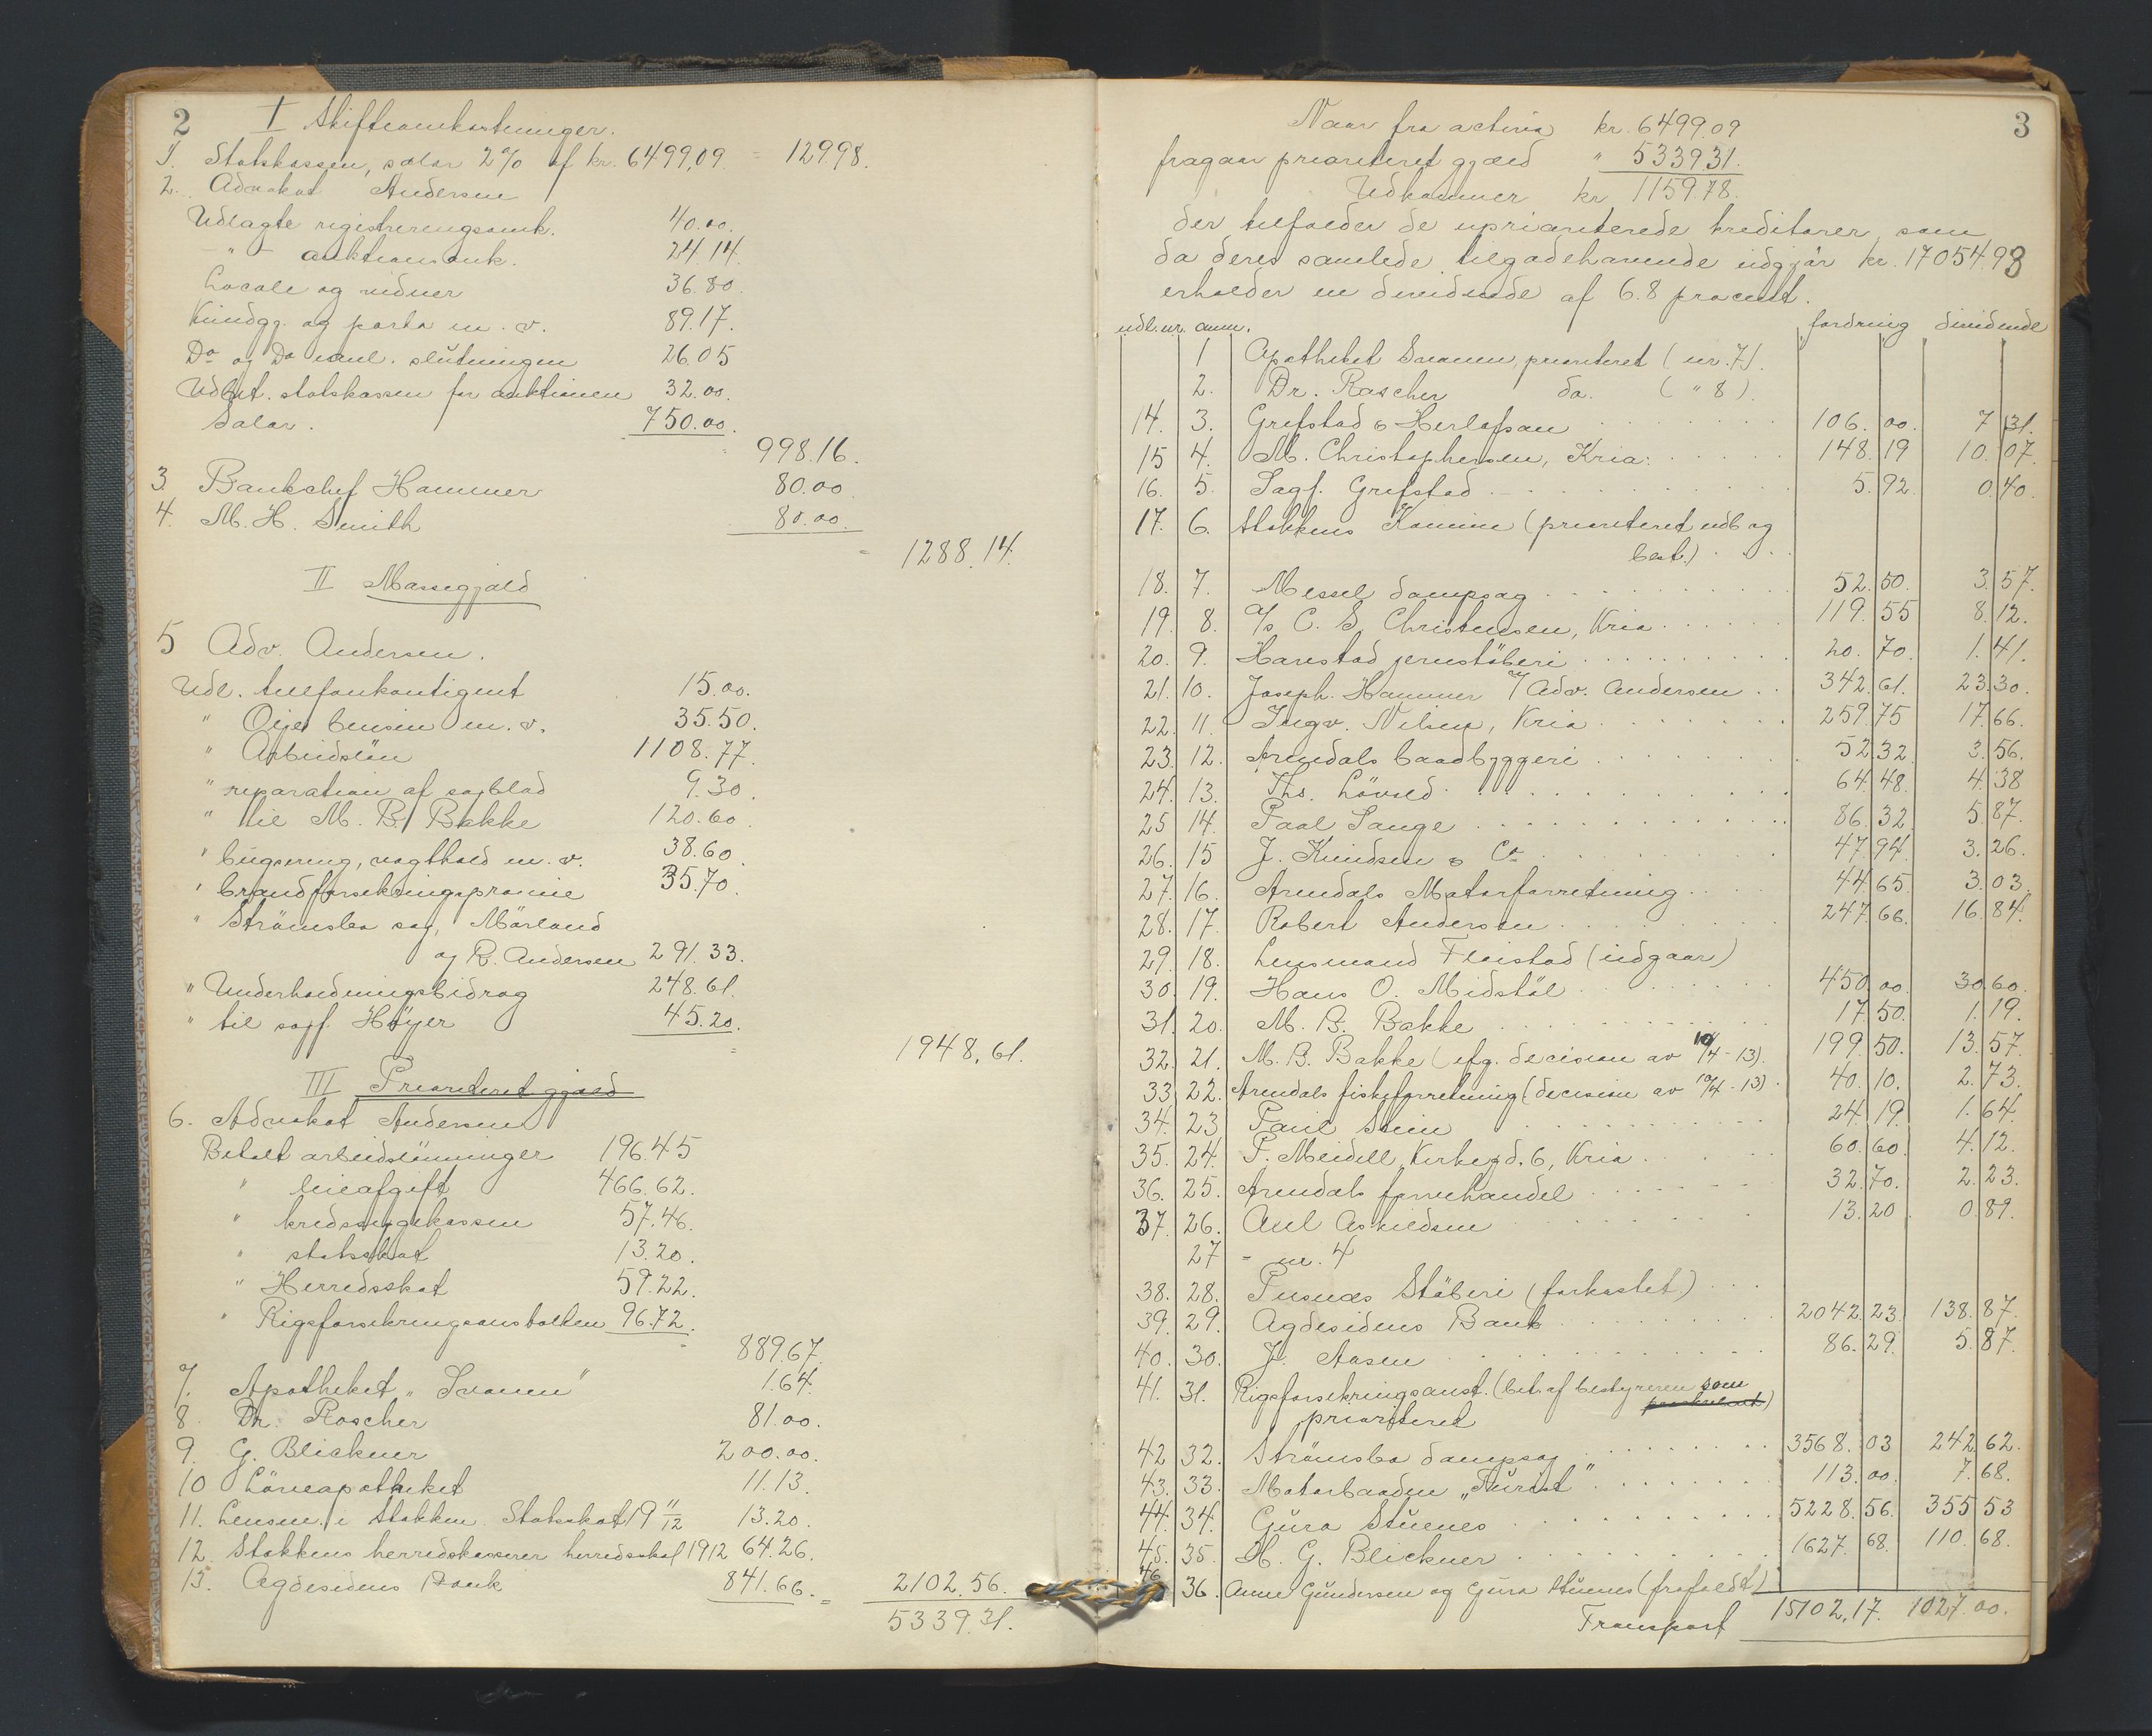 2
I Skifteomkostninger.
1. Statskassen, salær 2% af kr. 6499,09 = 129.98.
2. Advokat Andersen
Udlagte registreringsomk. 40.00.
-"- auktionsomk. 24.14.
Locale og vidner 36.80.
Kundgj. og porto m. v. 89.17.
Do og Do vml. slutningen 26.05
Udbet. statskassen for auktionen 32.00.
Salær. 750.00.
998.16.
3. Bankchef Hammer 80.00
4. M. H. Smith 80.00.
= 1288.14.
II Massegjæld
5 Adv. Andersen.
Udl. telefonkontigent 15.00.
" Olje bensin m. v. 35.50.
" Arbeidsløn 1108.77.
" reparation af sagblad 9.30.
" til M. B. Bakke 120.60.
" bugsering, vagthold m. v. 38.60.
" brandforsikringspræmie 35.70.
" Strömsbo sag, Mörland
og R. Andersen 291.33.
" Underholdningsbidrag 248.61.
" til sagf. Höyer 45.20.
= 1948,61.
III Prioriteret gjæld
6. Advokat Andersen
Betalt arbeidslönninger 196.45
" leieafgift 466.62.
" kredssygekassen 57.46.
" statsskat 13.20.
" Herredsskat 59.22.
" Rigsforsikringsanstalten 96.72.
889.67.
7. Apotheket "Svanen" 1.64.
8. Dr. Roscher 81.00.
9. G. Blickner 200.00.
10 Löveapotheket 11.13.
11. Lensm. i Stokken Statsskat 19 11/12 13.20.
12. Stokkens herredskasserer herredsskat 1912 64.26.
13. Agdesidens Bank 841.66. = 2102.56.
5339.31.
3
Naar fra activa kr. 6499.09
fragaar prioriteret gjæld " 5339.31.
Udkommer kr 1159.78.
der tilfalder de uprioriterede kreditorer, som
da deres samlede tilgodehavende udgjör kr. 17054.93
erholder en dividende af 6.8 procent.
udl.nr. anm. fordring dividende
1 Apotheket Svanen, prioriteret (nr. 7).
2. Dr. Roscher do. (" 8).
14. 3. Grefstad & Herlofsen 106.00. 7.31.
15 4. M. Christophersen, Kria. 148.19 10.07.
16. 5. Sagf. Grefstad 5.92. 0.40.
17. 6. Stokkens Komune (prioriteret udb og
best.)
18. 7. Messel dampsag 52.50. 3.57.
19. 8. A/s C. S. Christensen, Kria 119.55 8.12.
20. 9. Harestad jernstöberi 20.70. 1.41.
21. 10. Joseph. Hammer v/ Adv. Andersen 342.61. 23.30.
22. 11. Ingv. Nilsen, Kria 259.75 17.66.
23. 12. Arendals baadbyggeri 52.32 3.56.
24. 13. Ths. Lövsed 64.48. 4.38
25 14. Paal Lange 86.32 5.87.
26. 15 J. Knudsen & Co 47.94. 3.26.
27. 16. Arendals Motorforretning 44.65. 3.03.
28. 17. Robert Andersen 247.66. 16.84.
29. 18. Lensmand Fleistad (udgaar)
30. 19. Hans O. Midstöl 450.00. 30.60.
31. 20. M. B. Bakke 17.50. 1.19.
32. 21. M. B. Bakke (efg. decision av 10/4-13). 199.50. 13.57.
33. 22. Arendals fiskeforretning (decision av 10/4-13) 40.10. 2.73.
34. 23 Paul Stien 24.19. 1.64.
35. 24. P. Meidell, Kirkegd. 6, Kria 60.60. 4.12.
36. 25. Arendals farvehandel 32.70. 2.23.
37. 26. Axel Askildsen 13.20. 0.89.
27 = nr. 4
38. 28. Pusnæs Stöberi (forkastet)
39. 29. Agdesidens Bank 2042.23. 138.87.
40. 30. J. Aasen 86.29. 5.87.
41. 31. Rigsforsikringsanst. (bet. af bestyreren som
prioriteret
42 32. Strömsbo dampsag 3568.03 242.62.
43. 33. Motorbaaden "Turist" 113.00. 7.68.
44. 34. Gura Stuenes 5228.56. 355.53
45. 35. H. G. Blickner 1627.68. 110.68.
46 36. Anne Gundersen og Gura Stuenes (frafaldt)
Transport 15102,17. 1027.00.